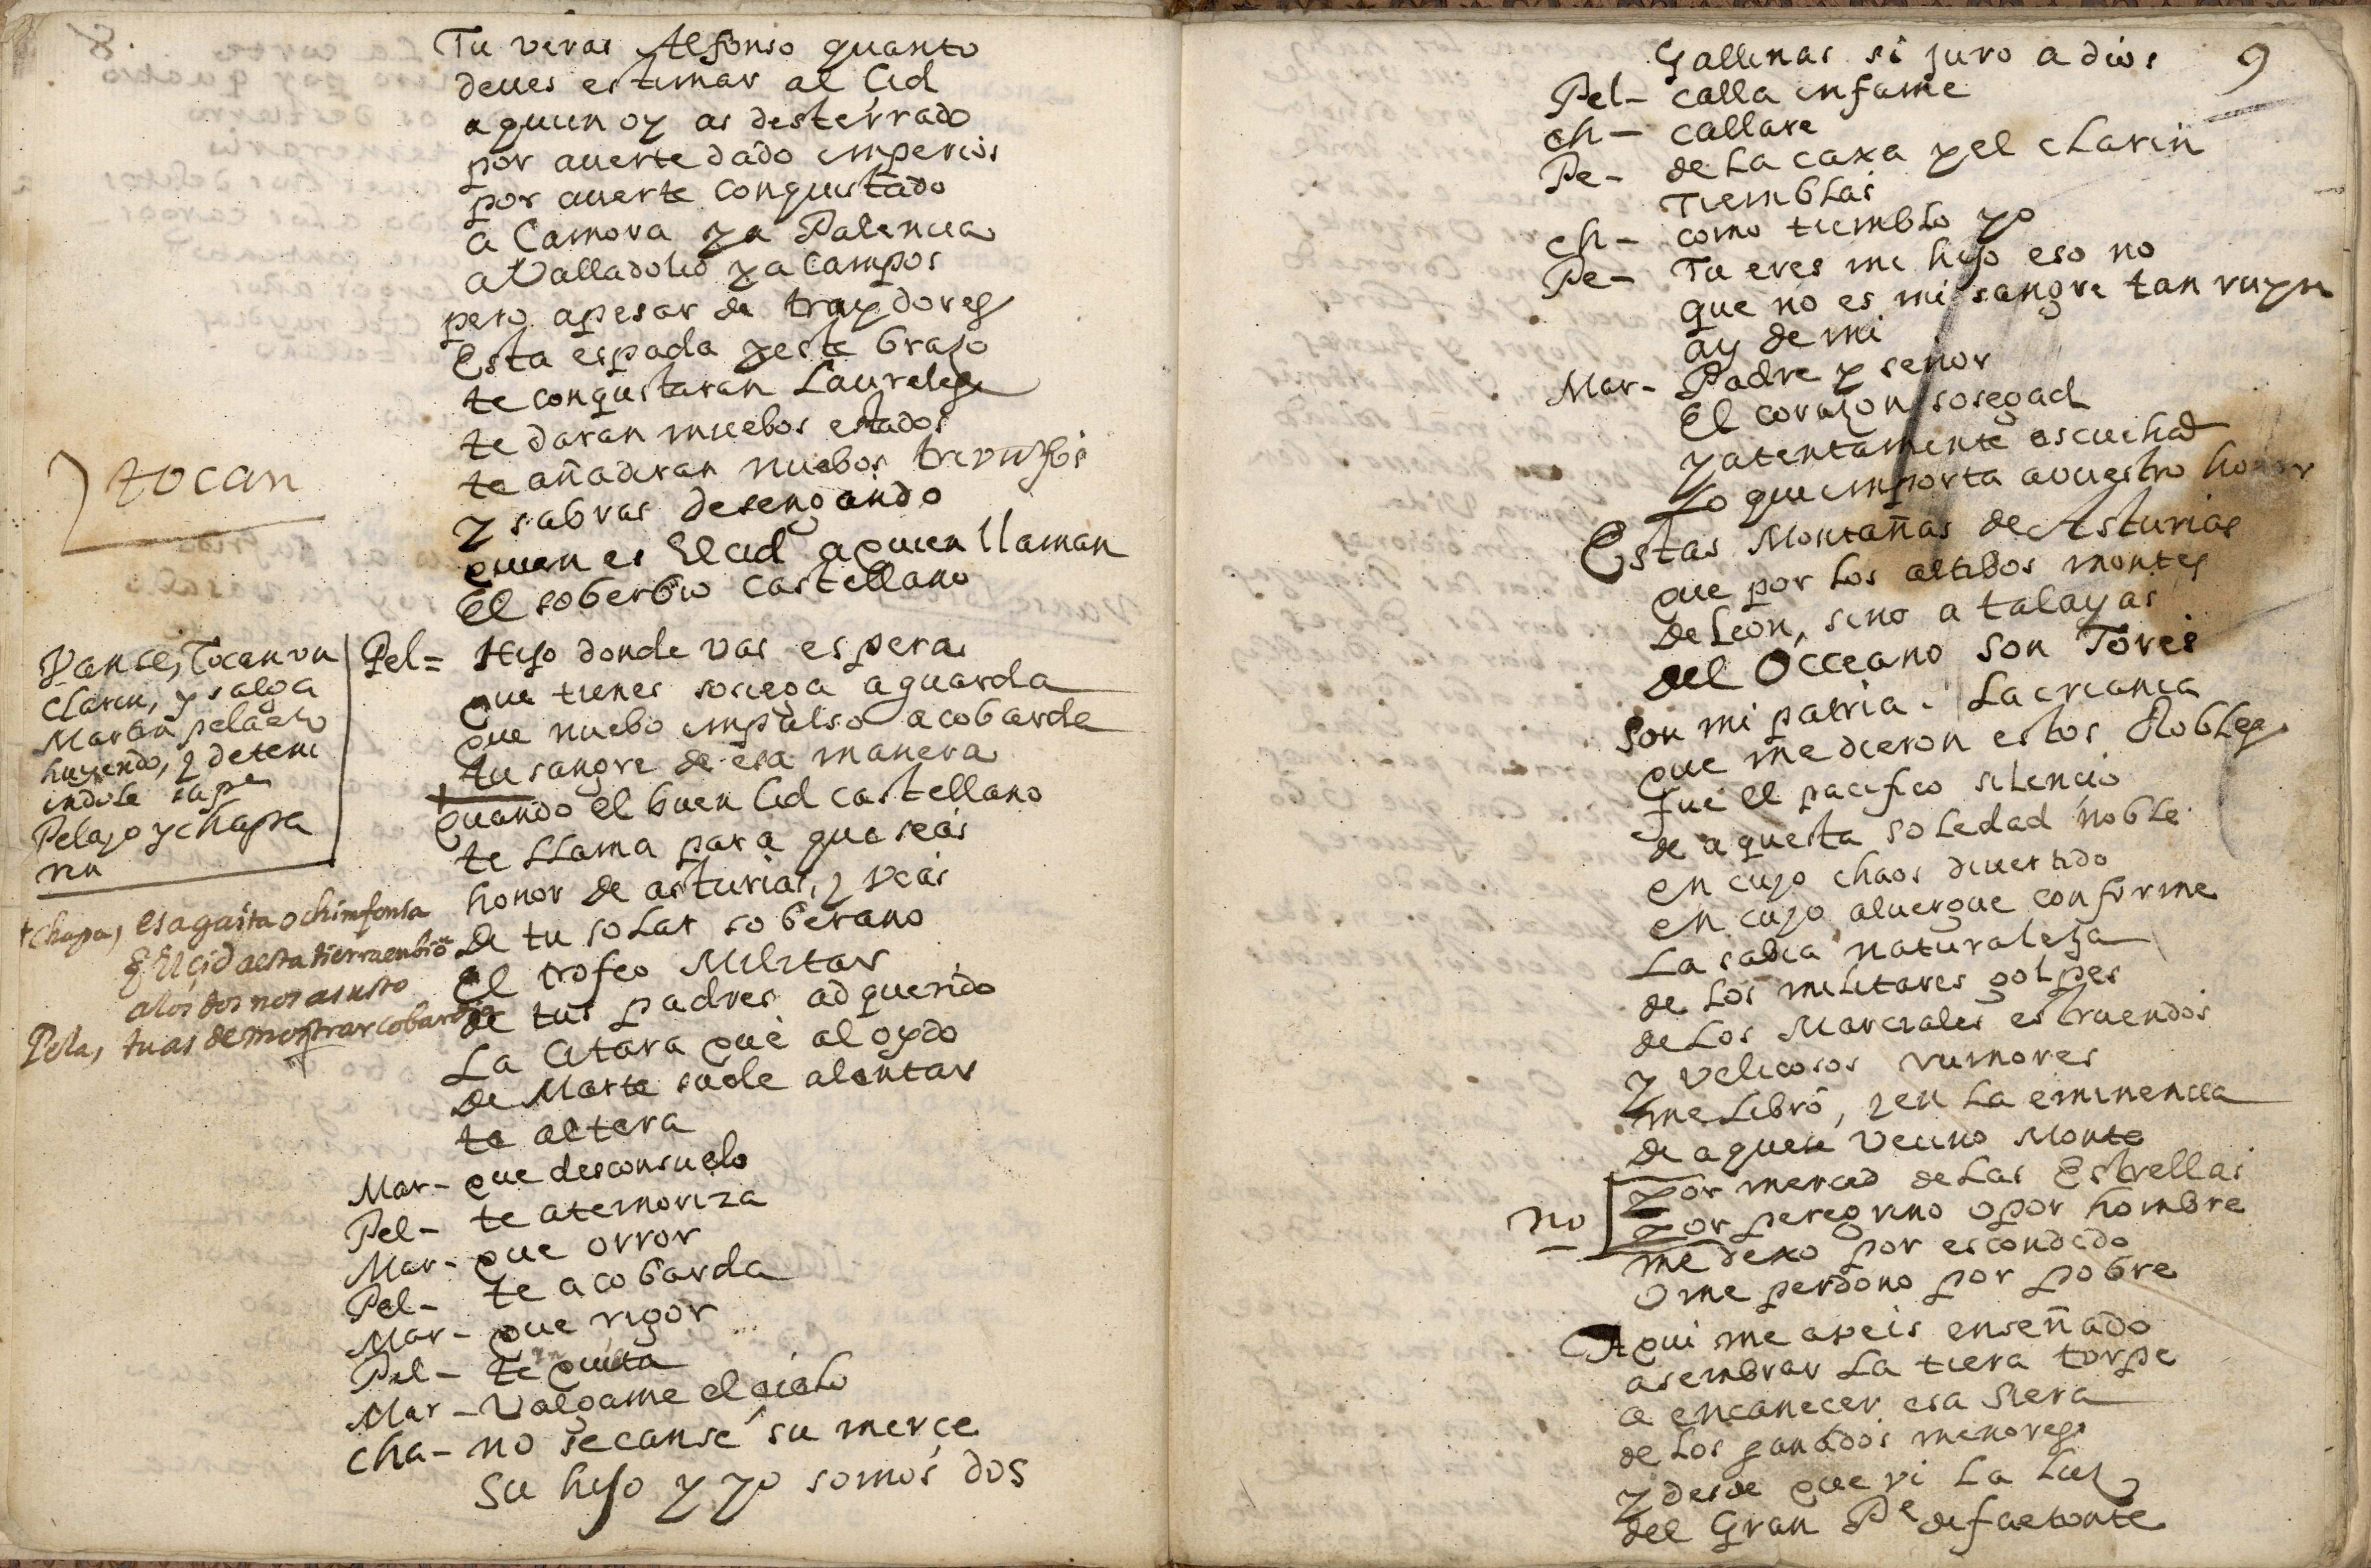 Tu veras Alfonso quanto
deues estimar al Cid
a quien oy as desterrado
por auerte dado imperios
por auerte conquistado
a Çamora y a Palencia
a Valladolid y a Campos
pero apesar de traydores
Esta espada y este braço
te conquistaran Laureles
te daran nuebos estados
te añadiran nuebos triunfos
y sabras desengañado
quien es El cid a quien llaman
El soberbio castellano
tocan
Vanse, Tocan un
clarin, y salga
Martin pelaezo
huyendo, y deteni
endole su pe
Pelayo y chapa
rin
Pel= Hijo donde vas espera
que tienes sosiega aguarda
que nuebo impulso acobarda
tu sangre de esa manera
quando el buen Cid castellano
te LLama para que seas
honor de asturias, y veas
De tu solar soberano
El trofeo Militar
de tus padres adquerido
La Citara que al oydo
De Marte suele alentar
te altera
+ chapa, esa gaita o chinfonia
q El çid a esta tierra enbio
a los dos nos asusto
Pela, tu as de mostrar cobardia
Mar- que desconsuelo
Pel- te atemoriza
Mar- que orror
Pel- te acobarda
Mar- que rigor
Pel- te quita
Mar- Valgame el cielo
cha- no se canse su merçe
Su hijo y yo somos dos
9
Gallinas si juro a dios
Pel- calla infame
ch- callare
Pe- de La caxa y el cLarin
TiembLas
ch- como tiembLo yo
Pe- Tu eres mi hijo eso no
que no es mi sangre tan ruyn
ay de mi
Mar- Padre y señor
El coraçon sosegad
y atentamente escuchad
Lo que importa a vuestro honor
Estas Montañas de Asturias
que por Los altibos montes
De Leon, sino atalayas
del Occeano son Tores
Son mi patria. La crianca
que me dieron estos Robles
fue el pacifico silencio
de aquesta soledad noble
en cuyo chaos diuertido
en cuyo aluergue conforme
La sabia naturaleza
de Los militares golpes
de Los Marciales estruendos
y velicosos rumores
me Libró, y en La eminencia
de aquese vecino Monte
no
por merced de Las Estrellas
por peregrino o por hombre
me dexo por escondido
o me perdono por pobre
Aqui me aveis enseñado
a sembrar La tiera torpe
a encanecer esa Siera
de Los ganados menores
y desde que vi La Luz
del Gran Pe de faetonte